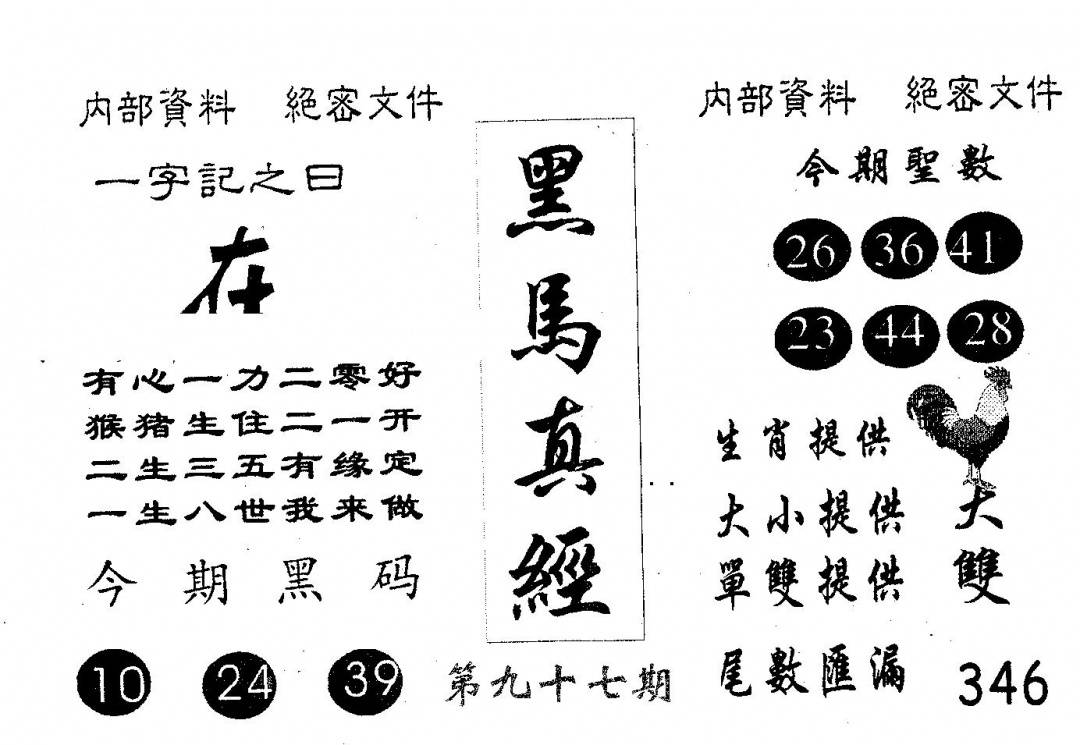 内部資料 絕密文件
一字記之曰
在
有心一力二零好
猴猪生住二一开
二生三五有缘定
一生八世我来做
今期黑码
10 24 39
黑馬真經
第九十七期
内部資料 絕密文件
今期聖數
26 36 41
23 44 28
生肖提供
大小提供 大
單雙提供 雙
尾數匯漏 346